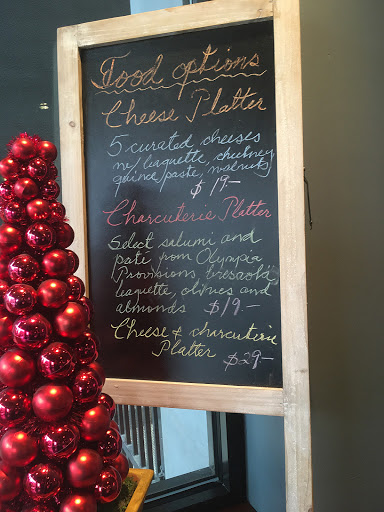 Food options
Cheese Platter
5 curated cheeses
w/ baguette, chutney,
quince paste, walnuts
$19-
Charcuterie Platter
Select salumi and
pate from Olympia
Provisions, bresaola
baguette, olives and
almonds $19.-
Cheese & charcuterie
Platter $29-